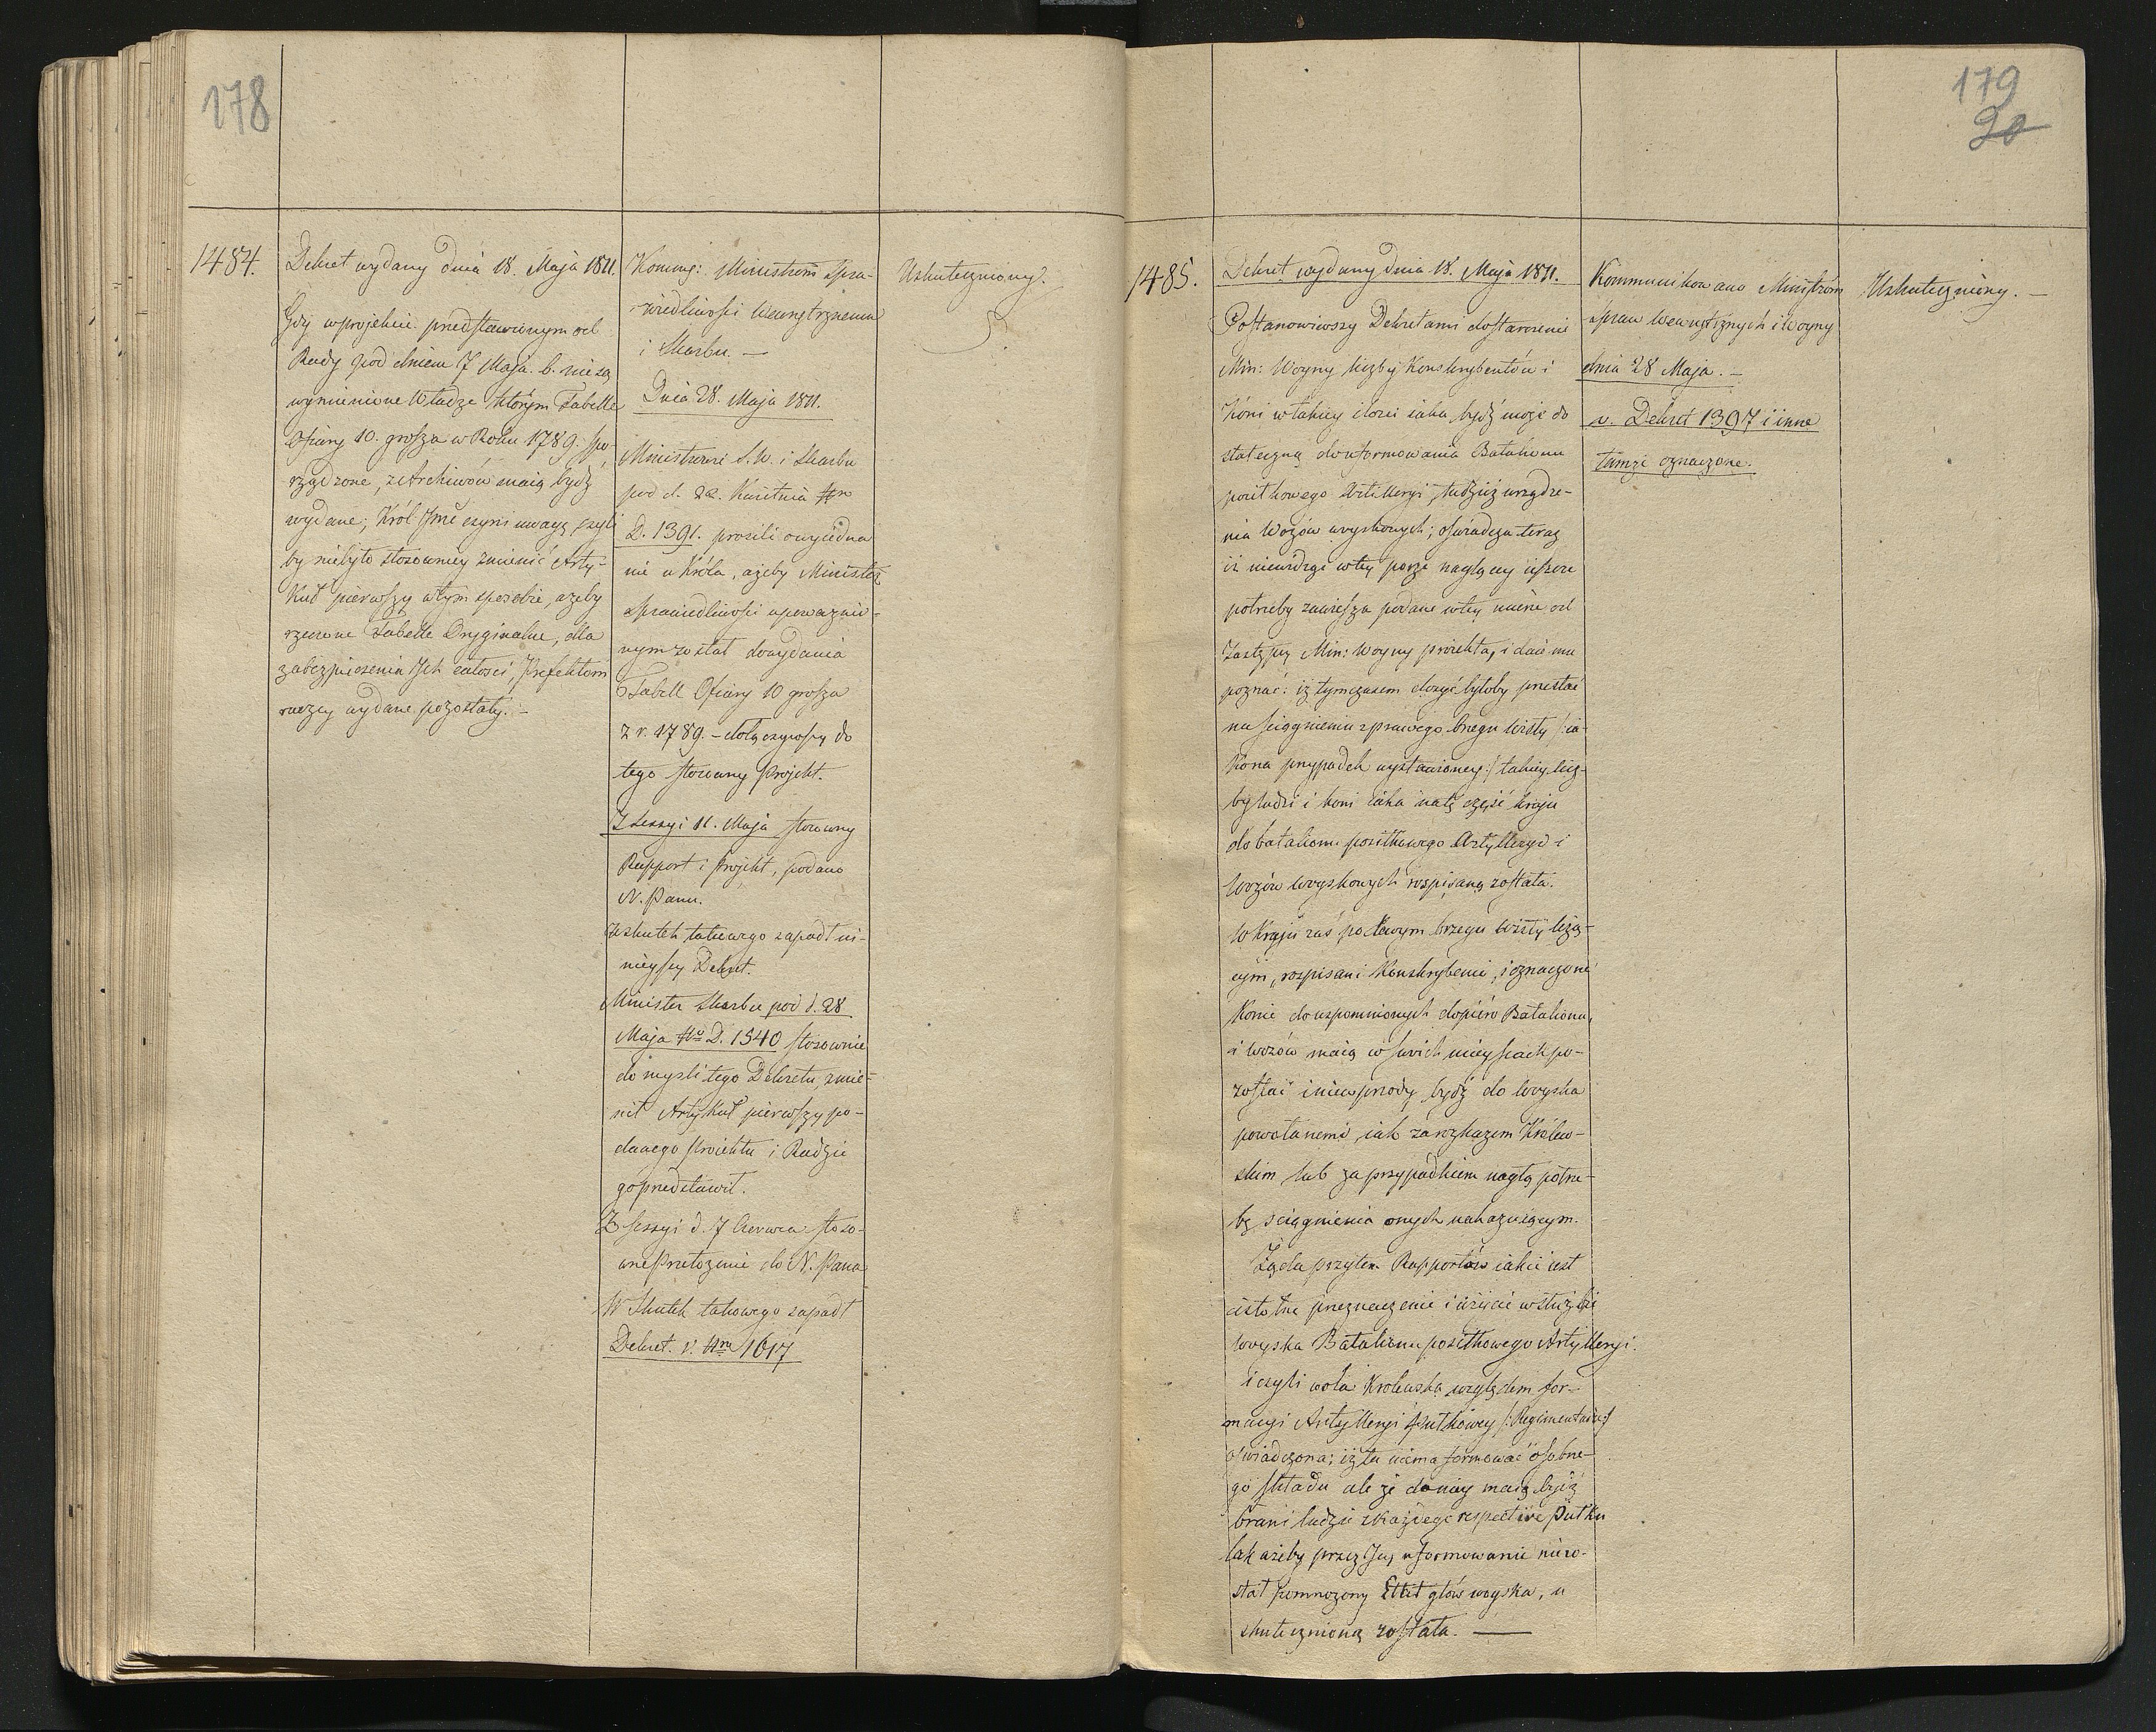 178
1484.
Dekret wydany dnia 18. Maja 1811.
Gdy w projekcie przedstawionym od
Rady pod dniem 7 Maja. b. nie są
wymienione Władze którym Tabelle
Ofiary 10. grosza w Roku 1789. spo-
rządzone, z Archiwów maią bydź
wydane; Król Jmć czyni uwagę, czyli
by niebyło stosowniey zmienić Arty-
kuł pierwszy w tym sposobie, ażeby
rzeczone Tabelle Oryginalne, dla
zabezpieczenia Ich całości, Prefektom
raczey wydane pozostały. -
Kommg: Ministrom Spra-
wiedliwości Wewnętrznemu
i Skarbu. -
Dnia 28. Maja 1811.
Ministrowie S. W. i Skarbu
pod d. 22. Kwietnia Nro
D. 1391. prosili o wyiedna
nie u Króla, ażeby Minister
Sprawiedliwości upoważnio-
nym został do wydania
Tabell Ofiary 10 grosza
z r. 1789. - dołączywszy do
tego stosowny Projekt.
Z Sessyi 11. Maja stosowny
Rapport i Projekt, podano
N. Panu.
W skutek takowego zapadł ni-
nieyszy Dekret.
Minister Skarbu pod d. 28
Maja No D. 1540 stosownie
do myśli tego Dekretu, zmie-
nił Artykuł pierwszy po-
danego Projektu i Radzie
go przedstawił.
Z Sessyi d. 7 Czerwca stoso-
wne Przełożenie do N. Pana
W Skutek takowego zapadł
Dekret. v. Nro 1617
Uskuteczniony.
179
20
1485.
Dekret wydany dnia 18. Maja 1811.
Postanowiwszy Dekretami dostarczenie
Min: Woyny liczby Konskrybentów i
Koni w takiey ilości iaka bydź może do
stateczną do uformowania Batalionu
posiłkowego Artylleryi, tudzież urządze-
nia Wozów woyskowych; oświadcza teraz
iż niewidząc w tey porze naglącey ieszcze
potrzeby zawiesza podane w tey mierze od
Zastępcy Min: Woyny proiekta, i daie mu
poznać: iż tymczasem dosyć byłoby przestać
na ściągnieniu z prawego brzegu Wisły /: ia-
ko na przypadek wystawioney :/ takiey licz-
by ludzi i koni iaka na tę część kraju
do batalionu posiłkowego Artylleryi i
Wozów woyskowych rospisaną została.
W Kraju zaś po lewym brzegu Wisły leżą-
cym, rozpisani Konskrybenci, i oznaczone
Konie do wspomnionych dopiero Batalionu,
i Wozów maią w swoich mieyscach po-
zostać i niewprzody bydź do Woyska
powołanemi, iak za rozkazem Królew-
skim lub za przypadkiem nagłą potrze-
bę ściągnienia onych nakazuiącym.
Żąda przytem Rapportów iakie iest
istotne przeznaczenie i użycie w służbie
Woyska Batalionu posiłkowego Artylleryi.
i czyli wola Krolewska względem for-
macyi Artylleryi pułkowey /: Regimentaire :/
oświadczona; iż ta niema formować osobne-
go składu ale że do niey maią bydź
brani ludzie z każdego respective Pułku
tak ażeby przez Jey uformowanie niezo-
stał pomnożony Etat głów woyska, u
skutecznioną została. -
Kommunikowano Ministróm
Spraw Wewnętrznych i Woyny
dnia 28 Maja. -
v. Dekret 1397 i inne
tamże oznaczone.
Uskuteczniony. -